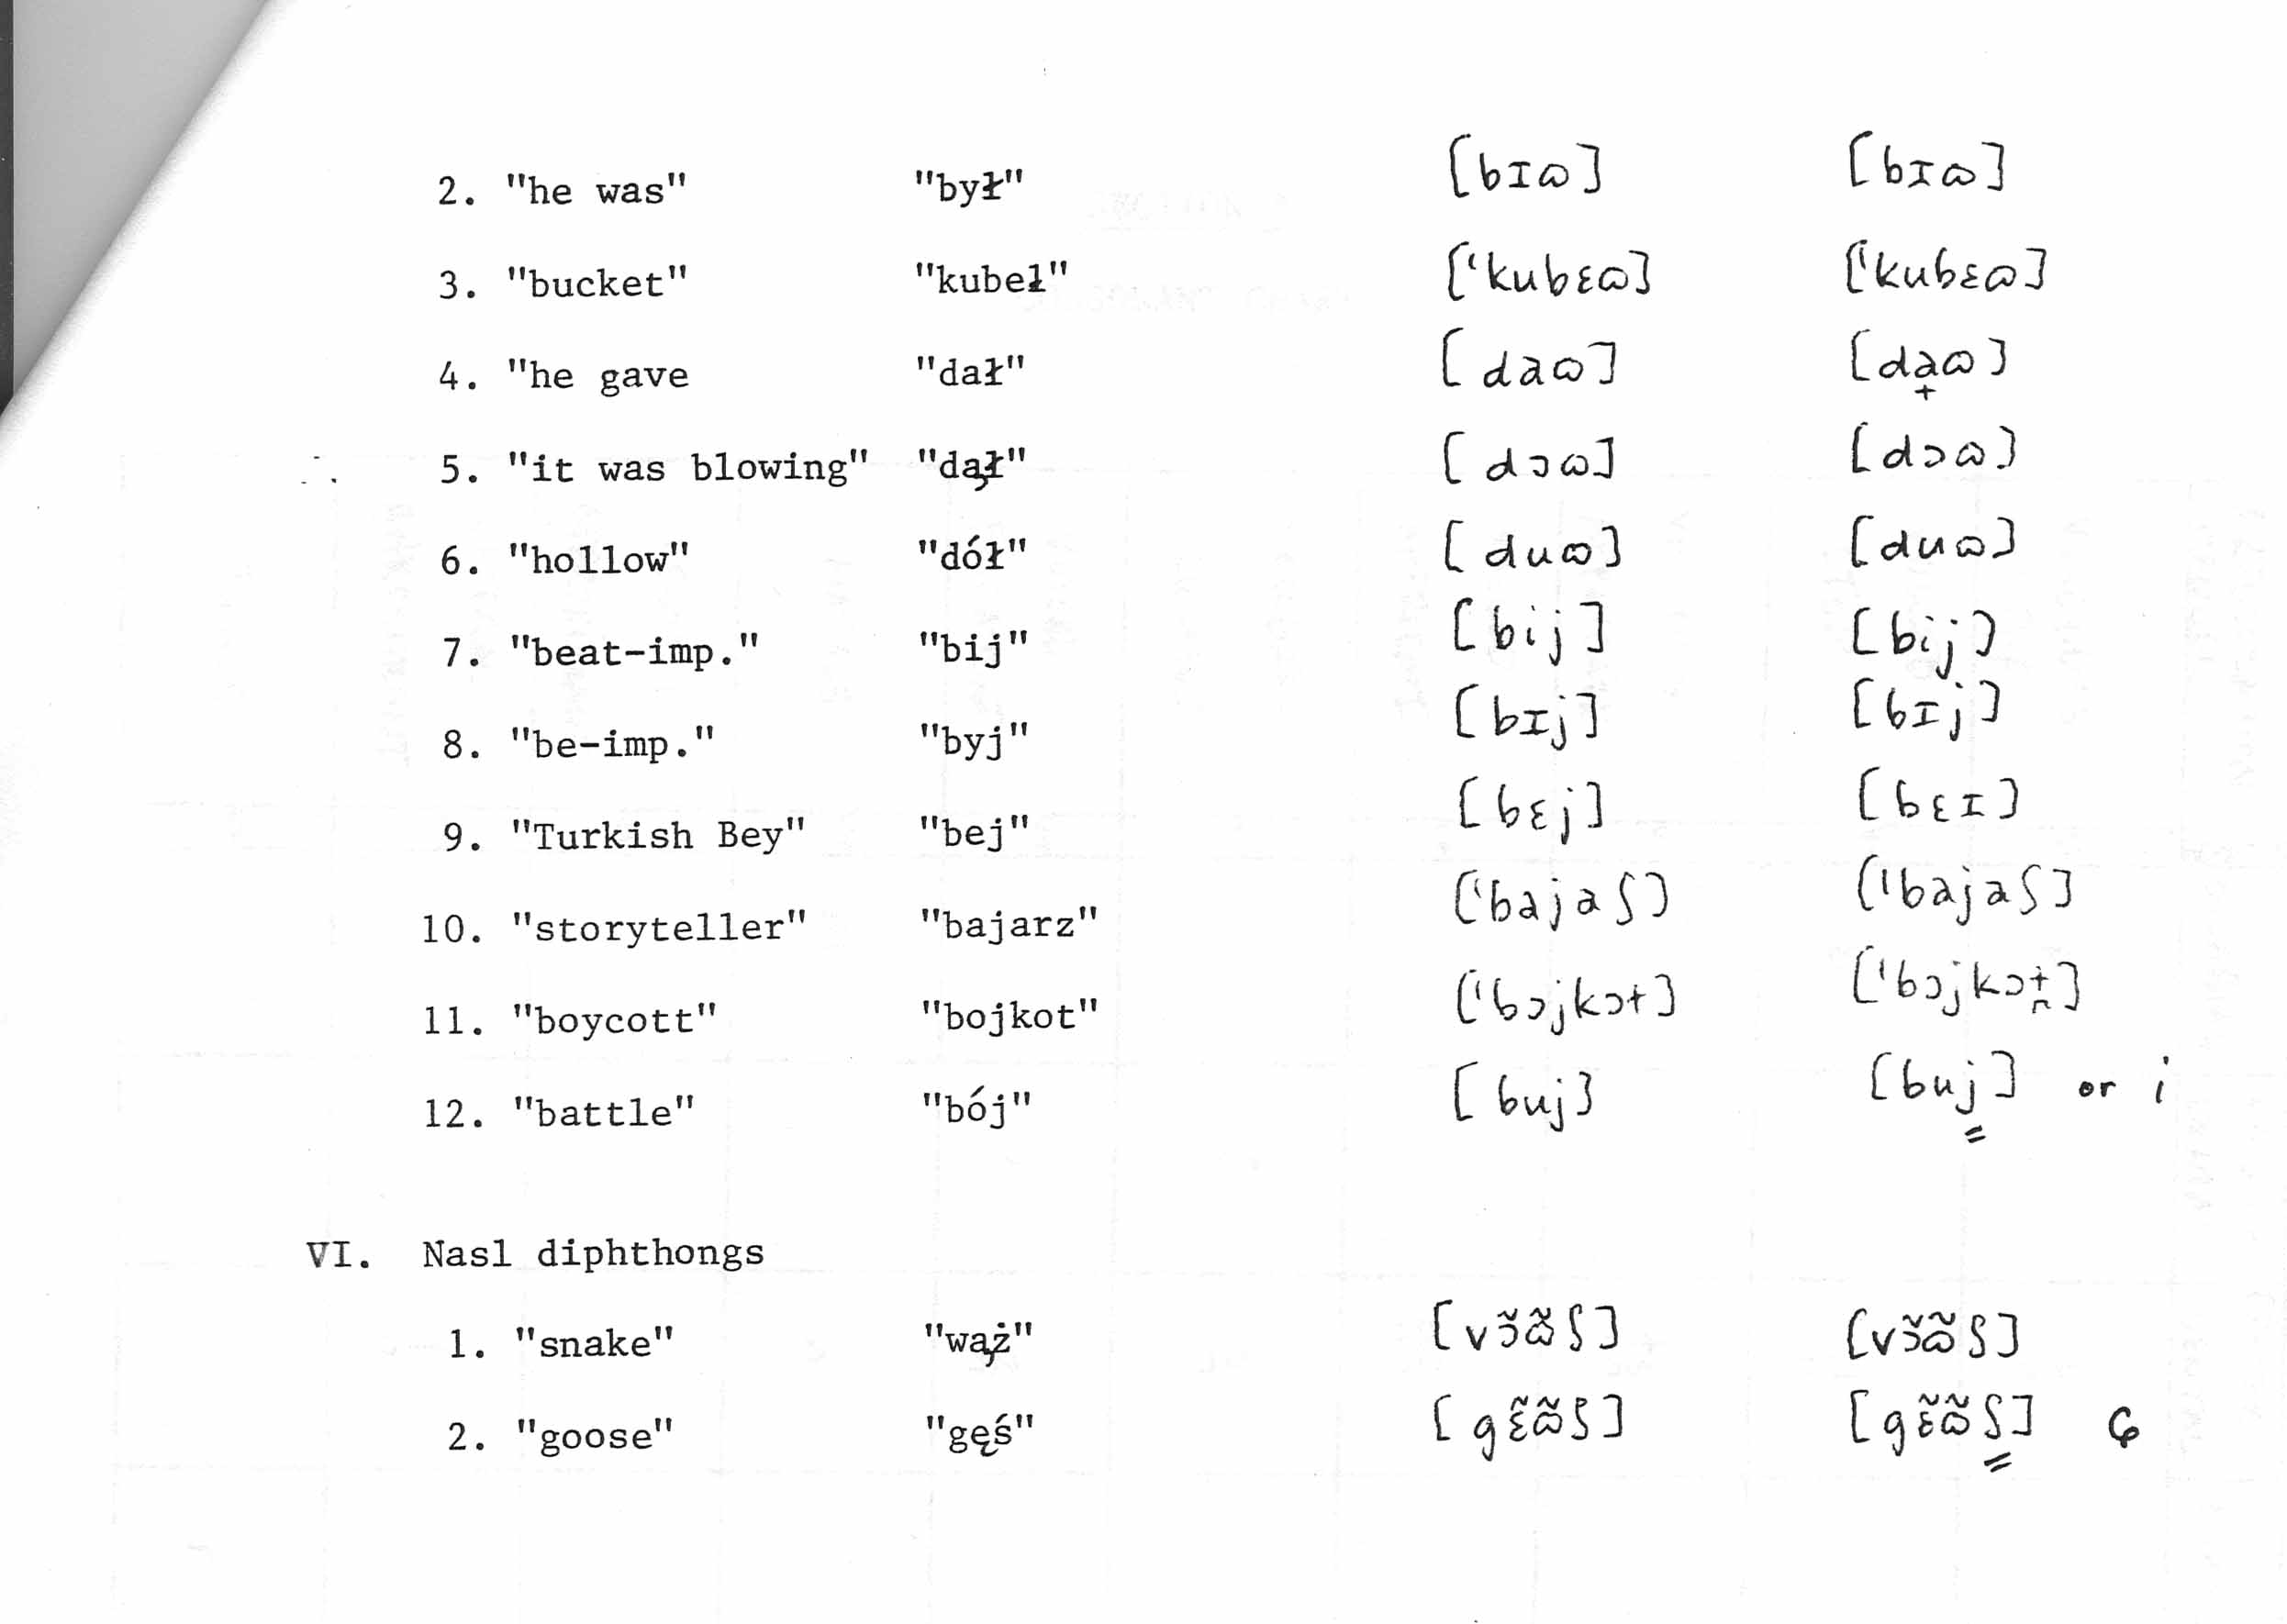 2. "he was" "był" [bɪɷ] [bɪɷ]
3. "bucket" "kubeł" ['kubɛɷ] ['kubɛɷ]
4. "he gave "dał" [daɷ] [da̟ɷ]
5. "it was blowing" "dął" [dɔɷ] [dɔɷ]
6. "hollow" "dół" [duɷ] [duɷ]
7. "beat-imp." "bij" [bij] [bij]
8. "be-imp." "byj" [bɪj] [bɪj]
9. "Turkish Bey" "bej" [bɛj] [bɛɪ]
10. "storyteller" "bajarz" ['bajaʃ] ['bajaʃ]
11. "boycott" "bojkot" ['bɔjkɔt] ['bɔjkɔt̪]
12. "battle" "bój" [buj] [buj͇] or i
VI. Nasl diphthongs
1. "snake" "wąż" [vɔ̃ɷ̃ʃ] [vɔ̃ɷ̃ʃ]
2. "goose" "gęś" [gɛ̃ɷ̃ʃ] [gɛ̃ɷ̃ʃ͇] ɕ